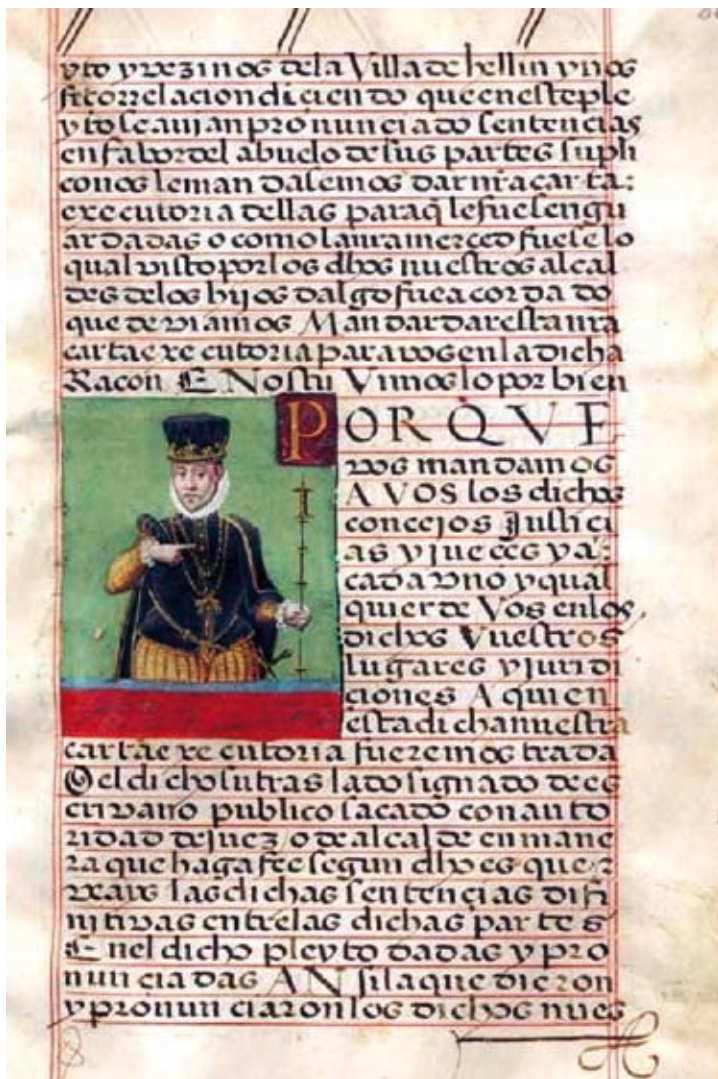 yto y vezinos de la Villa de hellin y nos
fizo rrelacion diciendo que en este ple
yto se auian pronunciado sentencias
en fabor del abuelo de sus partes supli
conos le mandasemos dar nr̃a carta:
executoria dellas para q̃ le fuesen gu
ardadas o como la nr̃a merced fuese lo
qual visto por los dhos nuestros alcal
des de los hijos dalgo fue acordado
que deviamos Mandar dar esta nr̃a
carta executoria para vos en la dicha
Racon E Nos tu Vimos lo por bien
PORQVE
vos mandamos
A VOS los dichos
concejos Justici
as y jueces y a:
cada vno y qual
quier de Vos en los
dichos Vuestros
lugares y juridi
ciones A quien
esta dicha nuestra
carta executoria fueremostrada
O el dicho su traslado signado de es
crivano publico sacado con auto
ridad de juez o de alcalde en mane
ra que haga fee segun dho es que:
veays las dichas sentencias difi
nitivas entre las dichas partes
E nel dicho pleyto dadas y pro
nunciadas ANsi la que dieron
y pronunciaron los dichos nues